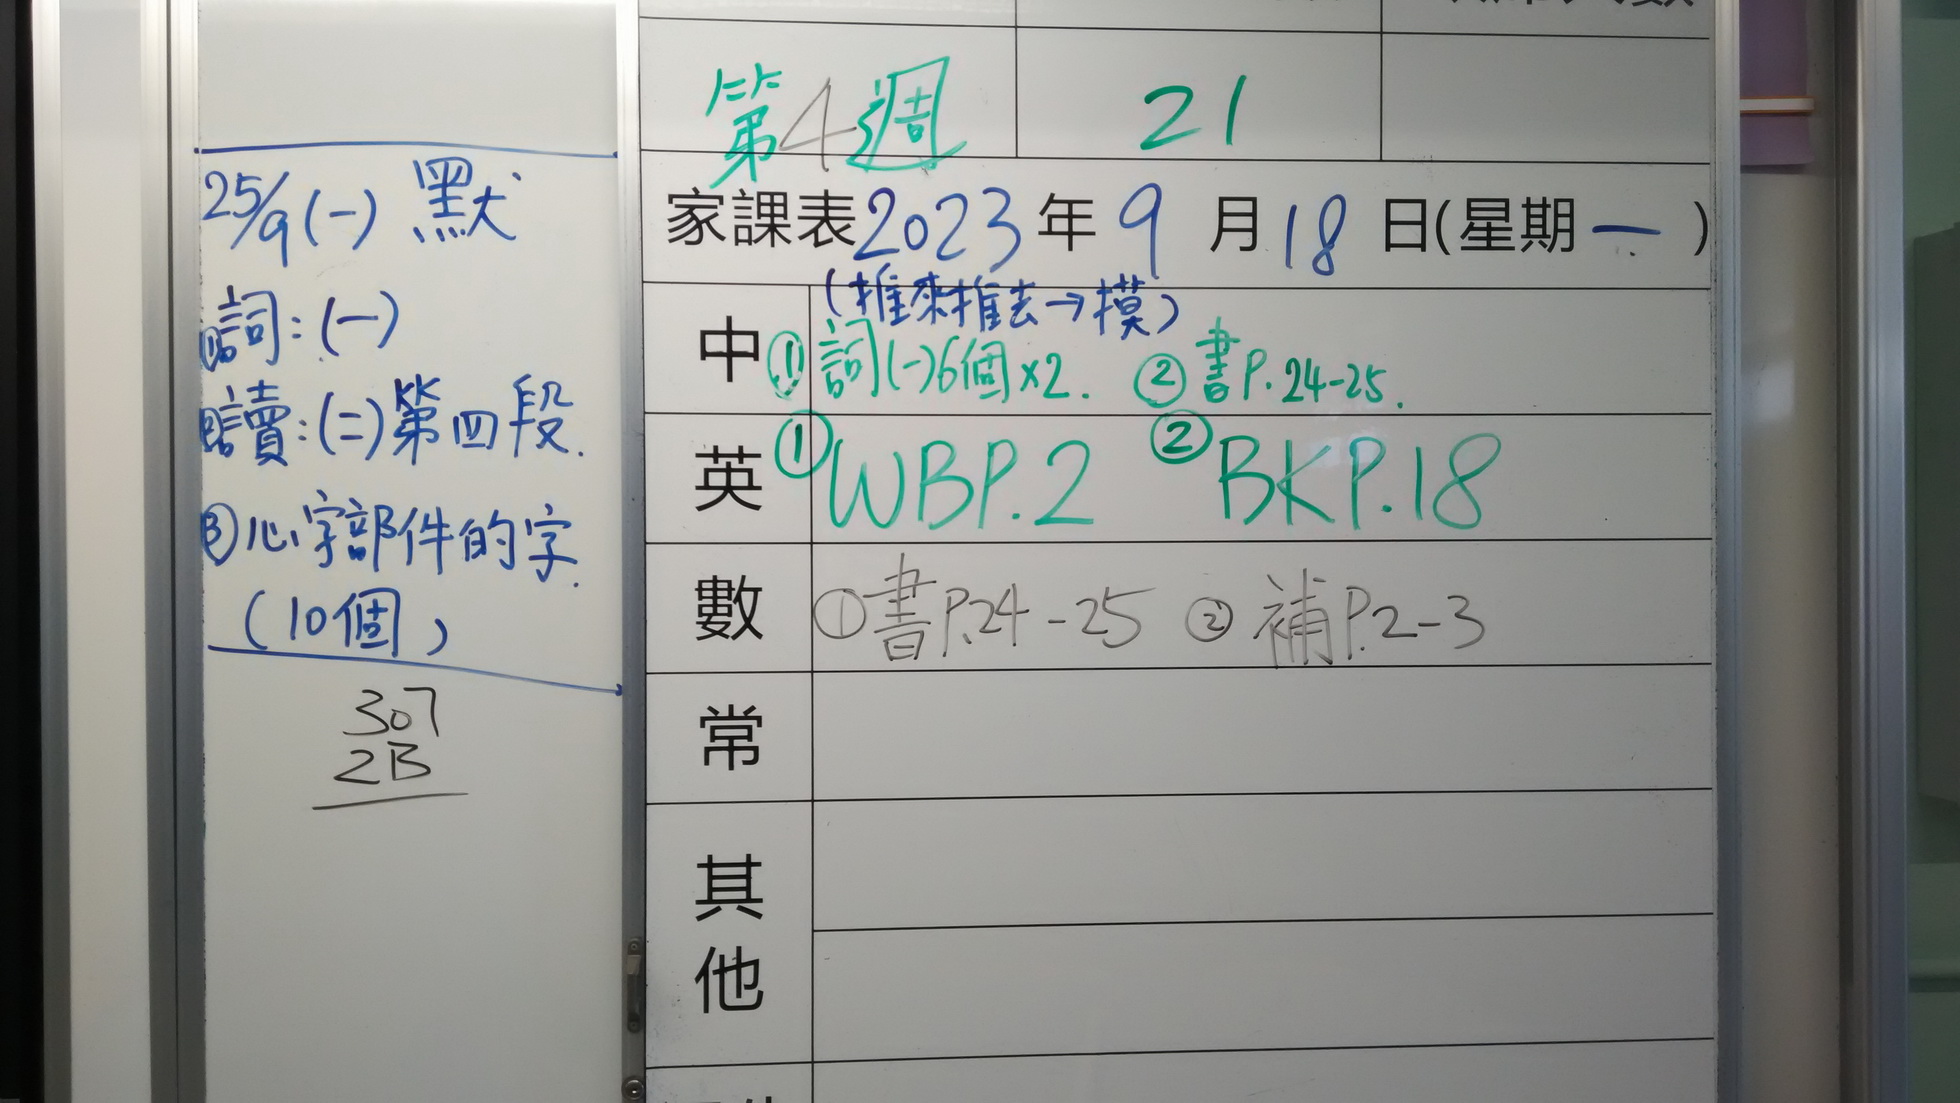 25/9(一) 默
①詞:(一)
②讀:(二)第四段.
③心字部件的字.
(10個)
307
2B
第4週 21
家課表2023年9月18日(星期一)
(推來推去→摸)
中 ①詞(一)6個×2. ②書P.24-25.
英 ①WBP.2 ②BKP.18
數 ①書P.24-25 ②補P.2-3
常
其
他